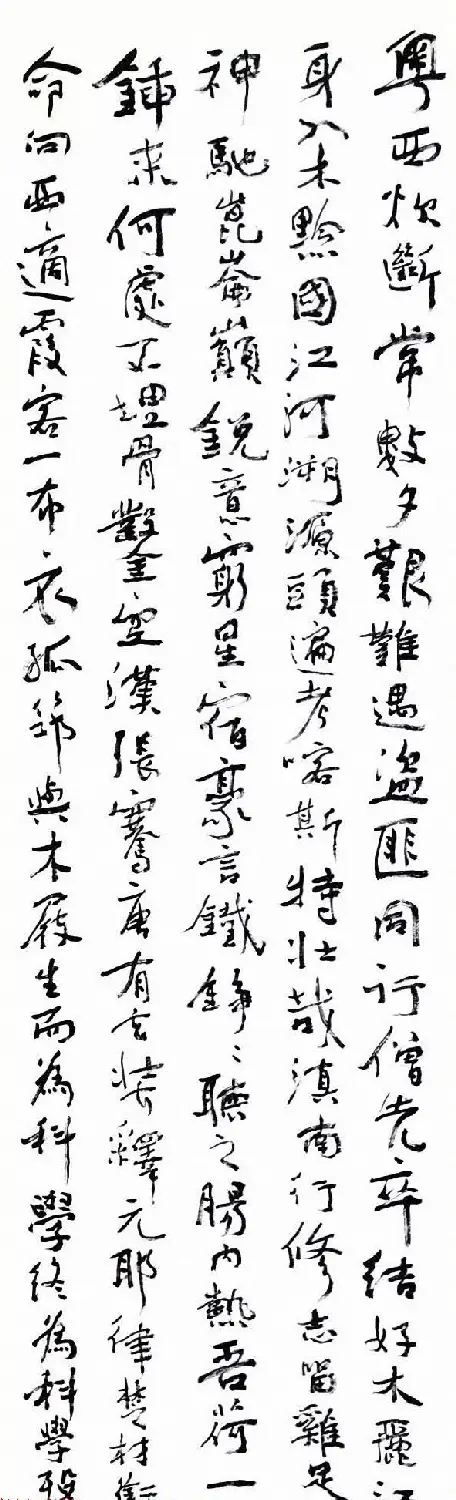 粵西炊斷常數夕艱難遇盜匪同行僧先卒結好木麗江
身入木黔國江河溯源頭遍考喀斯特壯哉滇南行修志留雞足
神馳崑崙巔銳意窮星宿豪言鐵錚々聽之腸內熱吾荷一
鍤來何處不埋骨鑿空漢張騫唐有玄奘釋元耶律楚材銜
命向西適霞客一布衣孤筇與木屐生而為科學終為科學歿